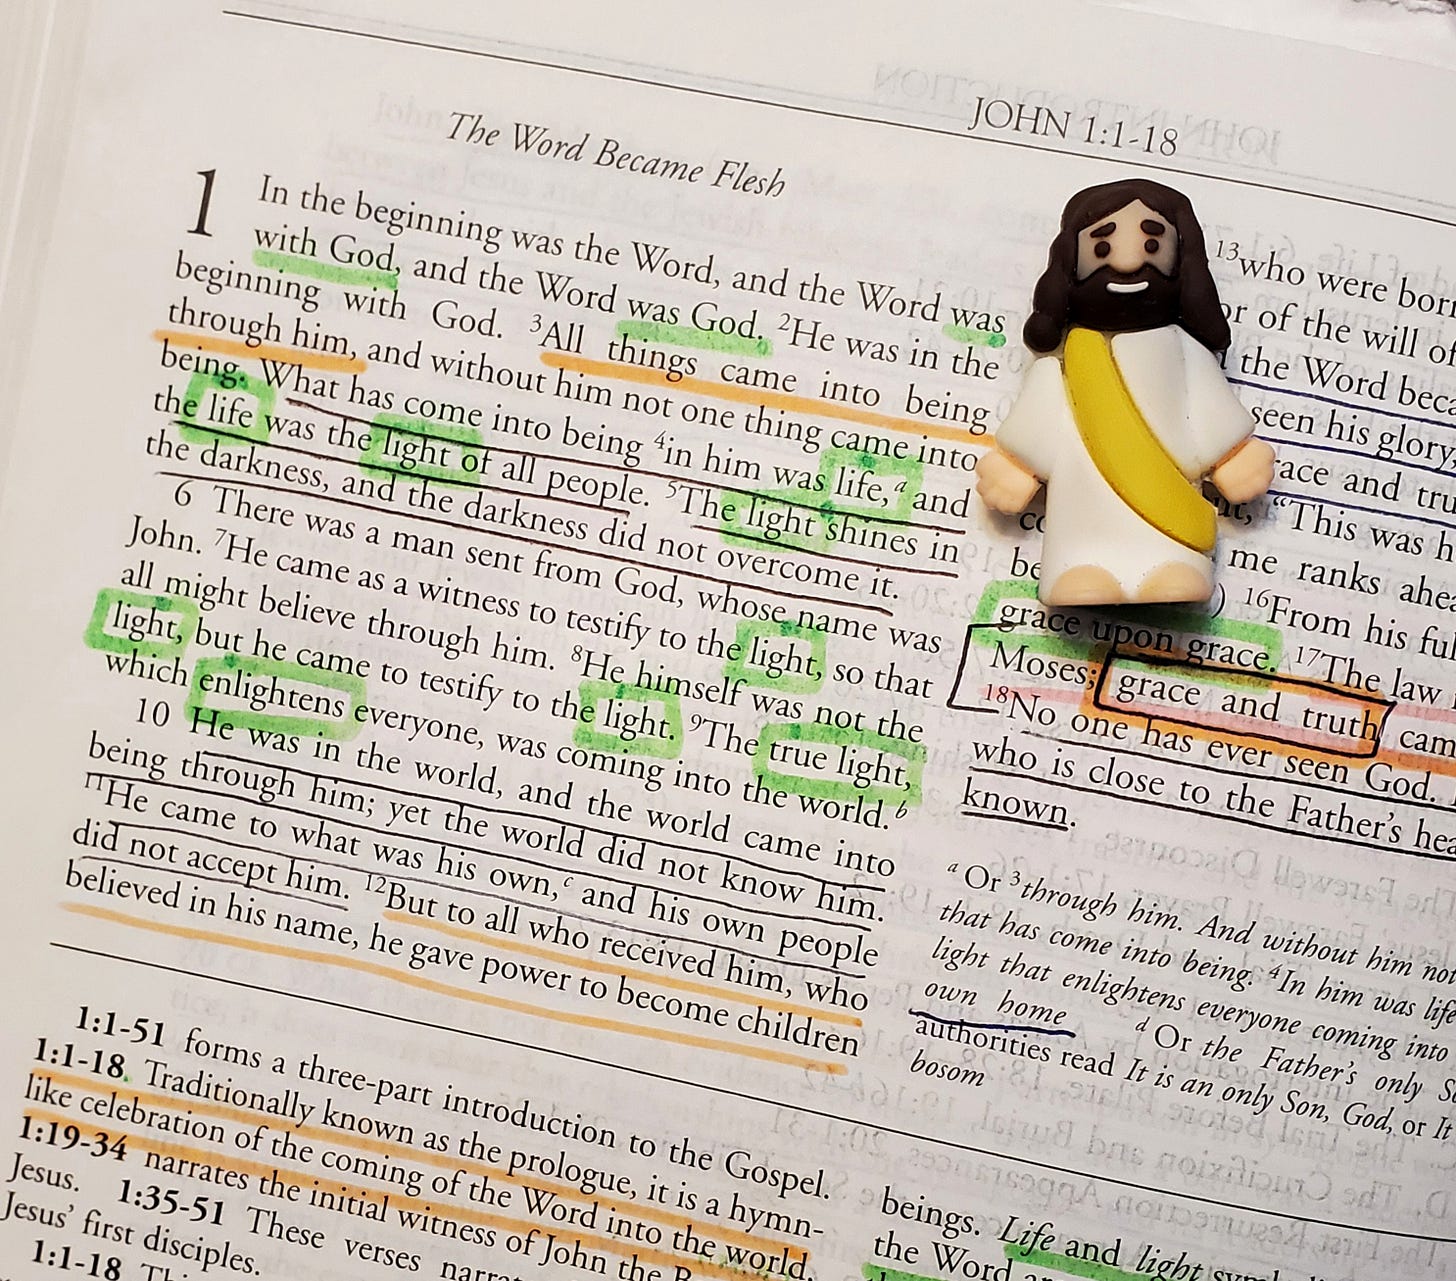 JOHN 1:1-18
The Word Became Flesh
1 In the beginning was the Word, and the Word was
with God, and the Word was God. 2He was in the
beginning with God. 3All things came into being
through him, and without him not one thing came into
being. What has come into being 4in him was life,a and
the life was the light of all people. 5The light shines in
the darkness, and the darkness did not overcome it.
6 There was a man sent from God, whose name was
John. 7He came as a witness to testify to the light, so that
all might believe through him. 8He himself was not the
light, but he came to testify to the light. 9The true light,
which enlightens everyone, was coming into the world.b
10 He was in the world, and the world came into
being through him; yet the world did not know him.
11He came to what was his own,c and his own people
did not accept him. 12But to all who received him, who
believed in his name, he gave power to become children
13who were born
of the will of
the Word
seen his glory,
and
"This was
me ranks
16From his
grace upon grace. 17The law
Moses; grace and truth
18No one has ever seen God.
who is close to the Father's
known.
a Or 3through him. And without him not
that has come into being. 4In him was life
light that enlightens everyone coming into
own home d Or the Father's only
authorities read It is an only Son, God, or It
bosom
1:1-51 forms a three-part introduction to the Gospel.
1:1-18. Traditionally known as the prologue, it is a hymn-
like celebration of the coming of the Word into the world.
1:19-34 narrates the initial witness of John the
Jesus. 1:35-51 These verses
Jesus' first disciples.
1:1-18
beings. Life and light
the Word